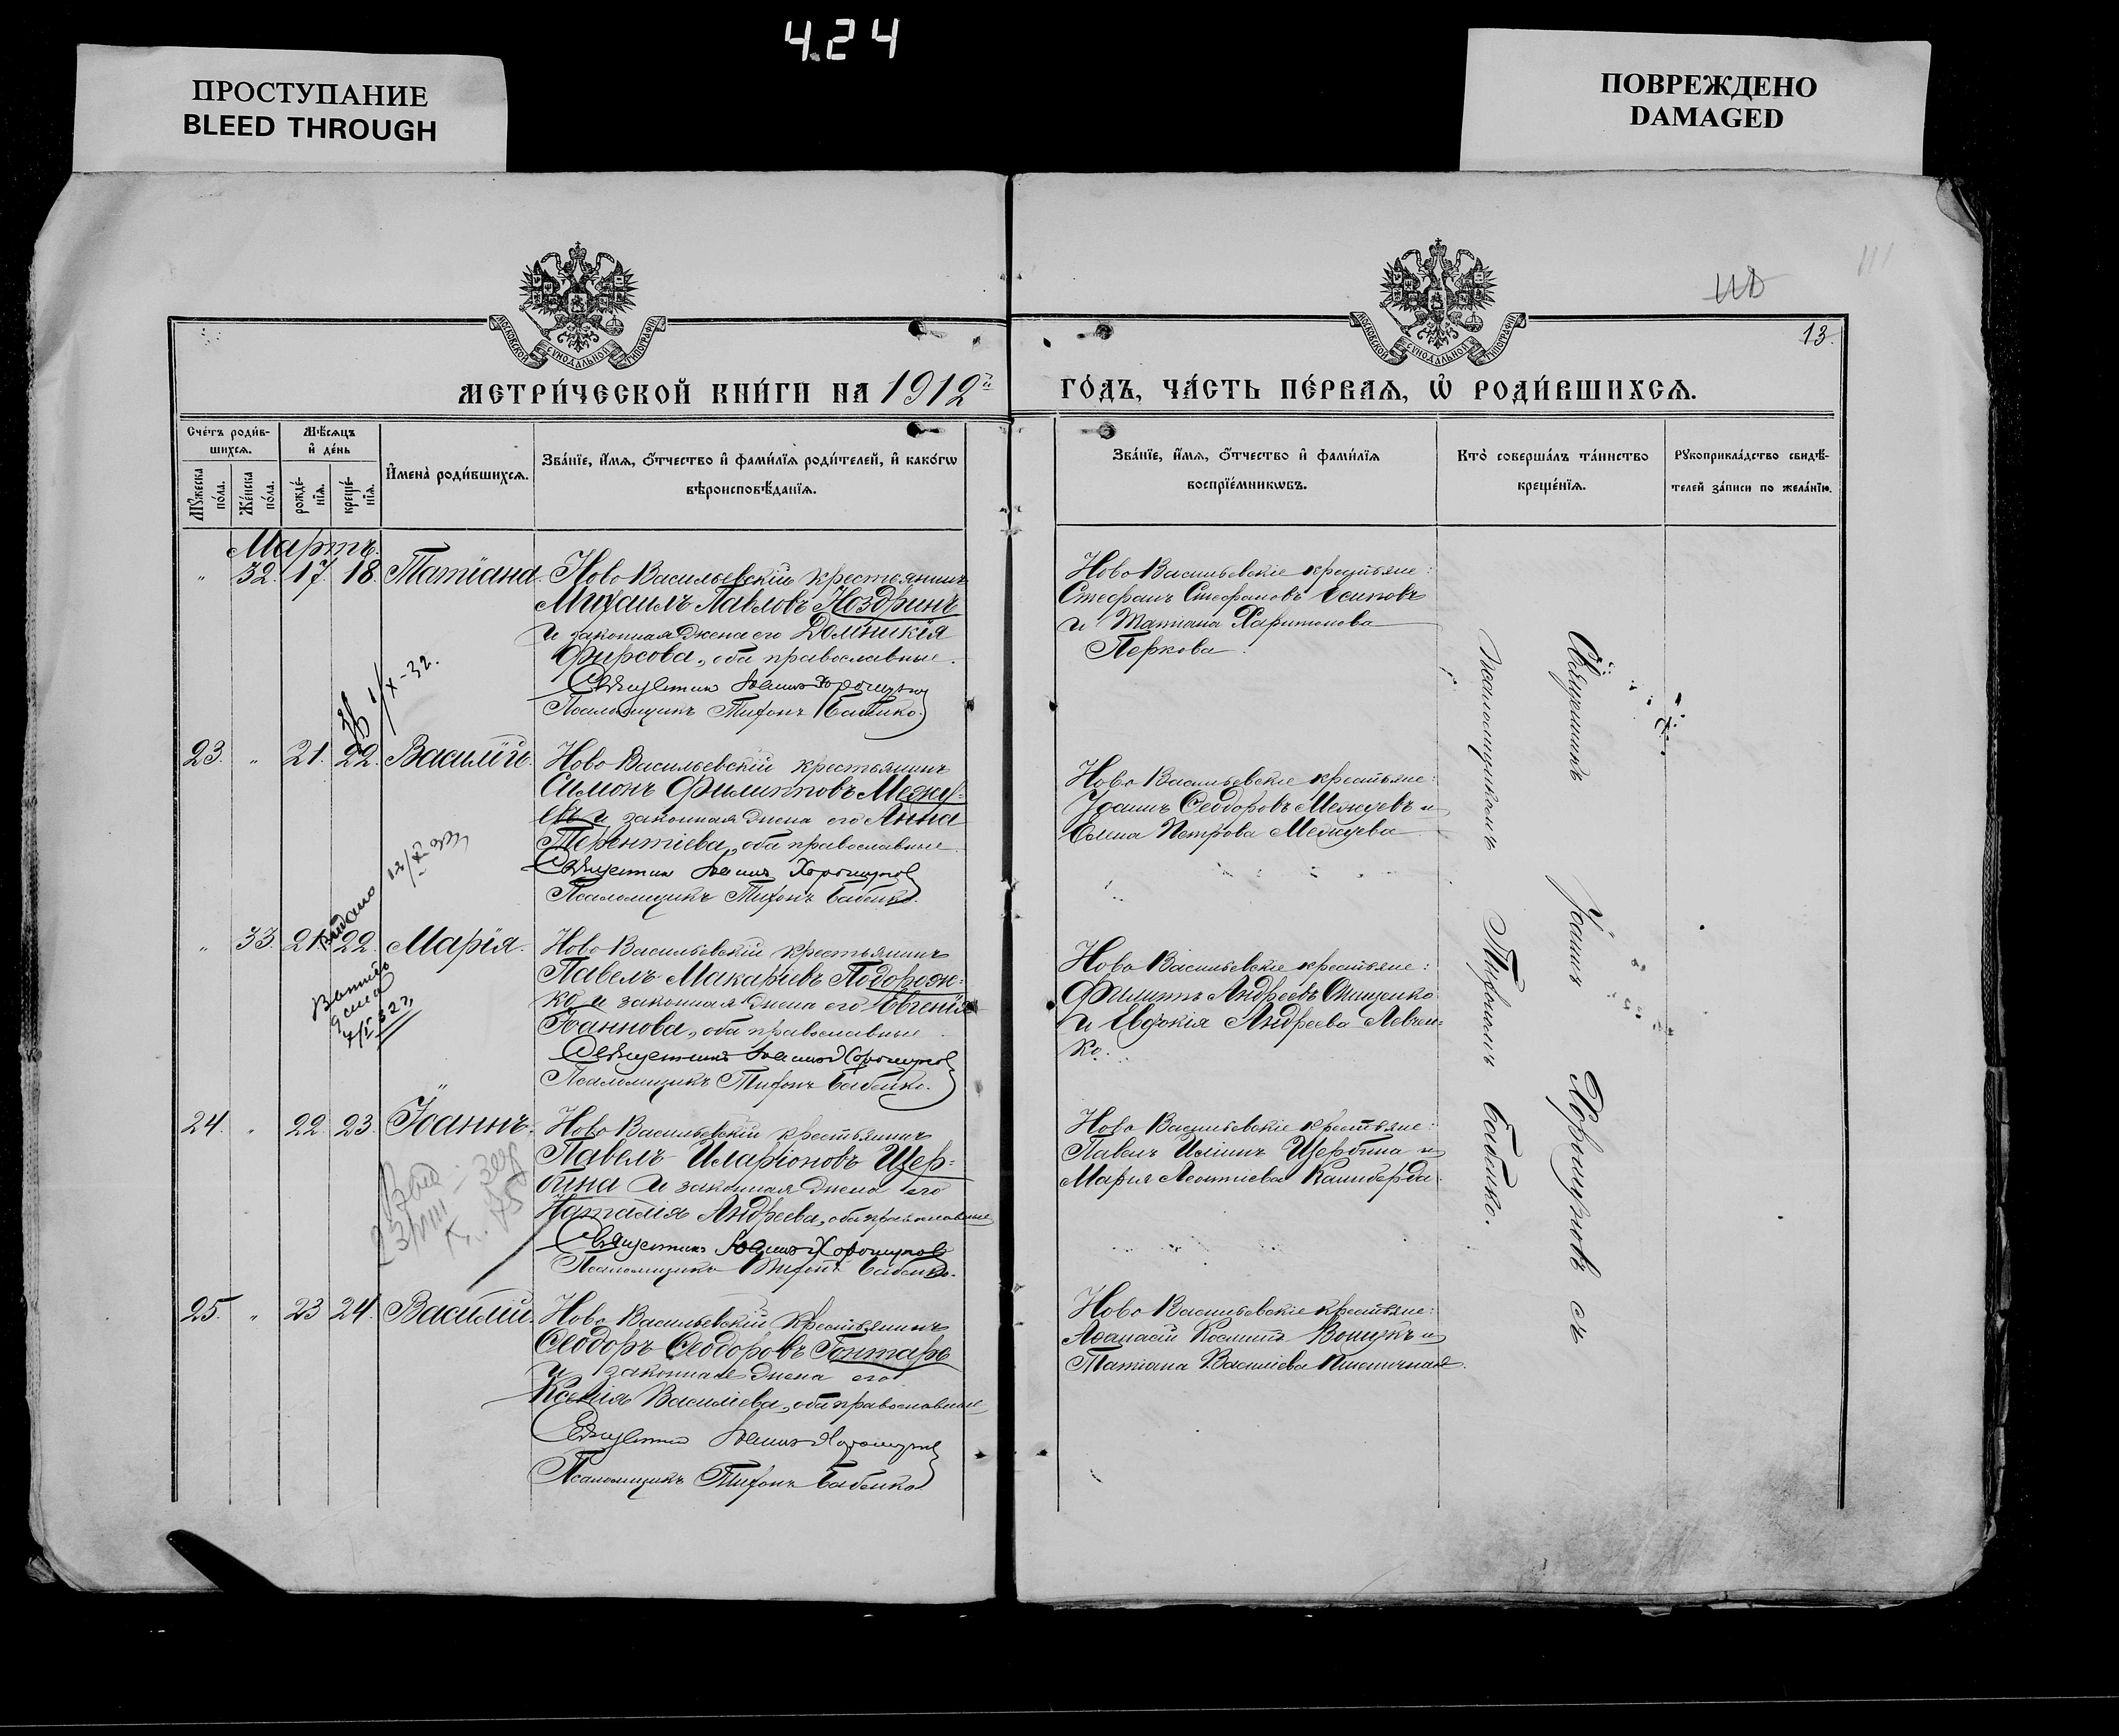 4.24
ПРОСТУПАНИЕ
BLEED THROUGH
ПОВРЕЖДЕНО
DAMAGED
111
13.
МОСКОВСКОЙ СѴНОДАЛЬНОЙ ТИПОГРАФІИ
МОСКОВСКОЙ СѴНОДАЛЬНОЙ ТИПОГРАФІИ
МЕТРИ́ЧЕСКОЙ КНИ́ГИ НА 1912й
ГО́ДЪ, ЧА́СТЬ ПЕ́РВАѦ, Ѡ҆ РОДИ́ВШИХСѦ.
Сче́тъ роди́в-
шихсѧ.
Мꙋжеска по́ла.
Же́нска по́ла.
Мѣ́сѧцъ
и҆ де́нь
рожде́-
нїѧ.
креще́-
нїѧ.
И҆мена̀ роди́вшихсѧ.
Зва́нїе, и҆́мѧ, ѻ҆́тчество и҆ фами́лїѧ роди́телей, и҆ како́гѡ
вѣроисповѣ́данїѧ.
Зва́нїе, и҆́мѧ, ѻ҆́тчество и҆ фами́лїѧ
воспрїе́мникѡвъ.
Кто̀ соверша́лъ та́инство
креще́нїѧ.
Рꙋкоприкла́дство свидѣ́-
телей за́писи по жела́нїю.
Мартъ.
" 32. 17. 18. Татіана.
Ново Васильевскій крестьянинъ
Михаилъ Павловъ Ноздринъ
и законная жена его Домникія
Фирсова, оба православные.
Священникъ Іоаннъ Хорошуновъ
Псаломщикъ Тифонъ Бабенко.
Ново Васильевскіе крестьяне:
Стефанъ Стефановъ Осиповъ
и Татіана Харитонова
Перкова.
1/X-32.
23. " 21. 22. Василій.
Ново Васильевскій крестьянинъ
Симонъ Филипповъ Межу-
евъ и законная жена его Анна
Терентіева, оба православные
Священникъ Іоаннъ Хорошуновъ
Псаломщикъ Тифонъ Бабенко.
Ново Васильевскіе крестьяне:
Іоаннъ Ѳеодоровъ Межуевъ и
Елена Петрова Межуева
Видано
" 33. 21. 22. Марія.
Ново Васильевскій крестьянинъ
Павелъ Макаріевъ Подорож-
ко и законная жена его Евгенія
Іоаннова, оба православные
Священникъ Іоаннъ Хорошуновъ
Псаломщикъ Тифонъ Бабенко.
Ново Васильевскіе крестьяне:
Филиппъ Андреевъ Онищенко
и Евдокія Андреева Левчен-
ко.
24. " 22. 23. Іоаннъ.
Ново Васильевскій крестьянинъ
Павелъ Иларіоновъ Щер-
бина и законная жена его
Наталія Андреева, оба православные
Священникъ Іоаннъ Хорошуновъ
Псаломщикъ Тифонъ Бабенко.
Ново Васильевскіе крестьяне:
Павелъ Иліинъ Щербина и
Марія Леонтіева Канибврда.
23/VIII
25. " 23 24. Василій.
Ново Васильевскій крестьянинъ
Ѳеодоръ Ѳеодоровъ Гонтарь
и законная жена его
Ксенія Василіева, оба православные
Священникъ Іоаннъ Хорошуновъ
Псаломщикъ Тифонъ Бабенко
Ново Васильевскіе крестьяне:
Аѳанасій Косминъ Вощукъ и
Татіана Василіева Пшеничная.
Священникъ Іоаннъ Хорошуновъ съ
псаломщикомъ Тифономъ Бабенко.